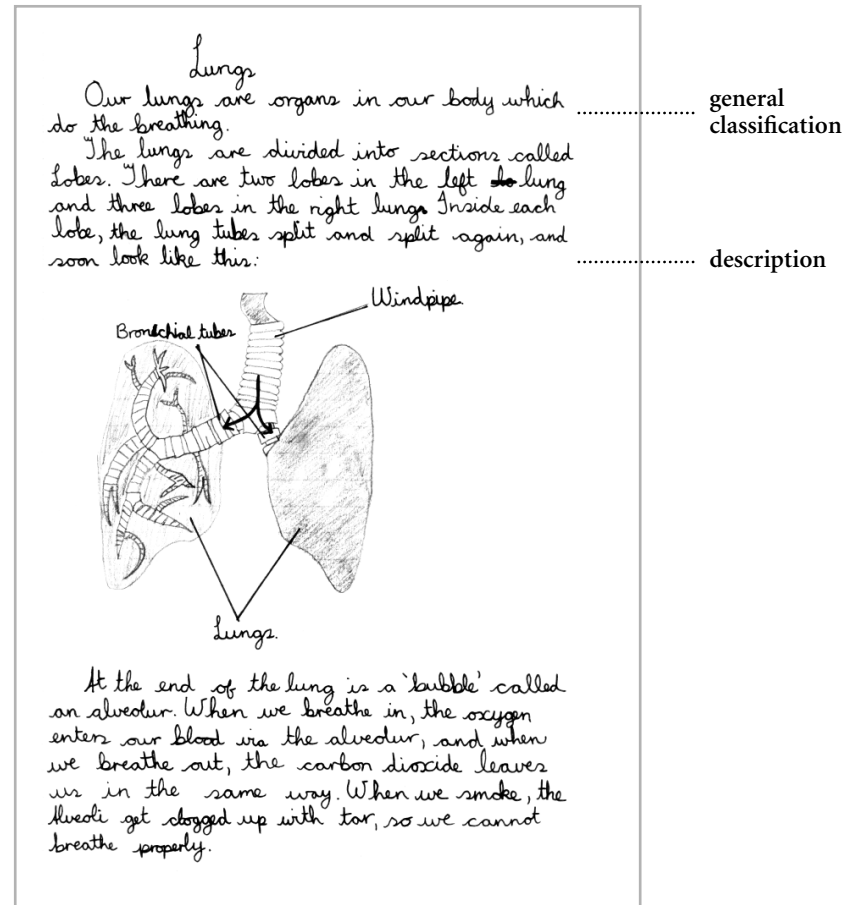 Lungs
Our lungs are organs in our body which
do the breathing.
general
classification
The lungs are divided into sections called
Lobes. There are two lobes in the left lung
and three lobes in the right lung. Inside each
lobe, the lung tubes split and split again, and
soon look like this:
description
Windpipe
Bronchial tubes
Lungs.
At the end of the lung is a 'bubble' called
an alveolur. When we breathe in, the oxygen
enters our blood via the alveolur, and when
we breathe out, the carbon dioxide leaves
us in the same way. When we smoke, the
Alveoli get clogged up with tar, so we cannot
breathe properly.